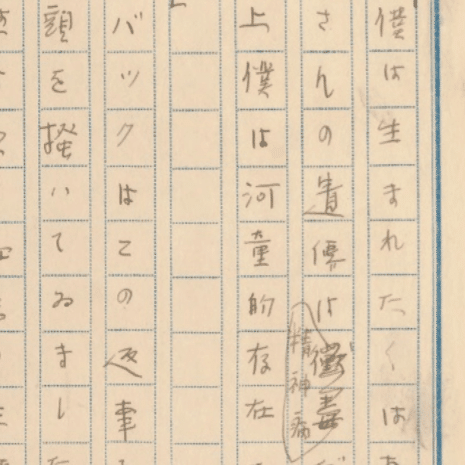 僕は生まれたくは
さんの遺傳は黴毒
精神病
上僕は河童的存在
バツクはこの返事
頭を掻いてゐまし